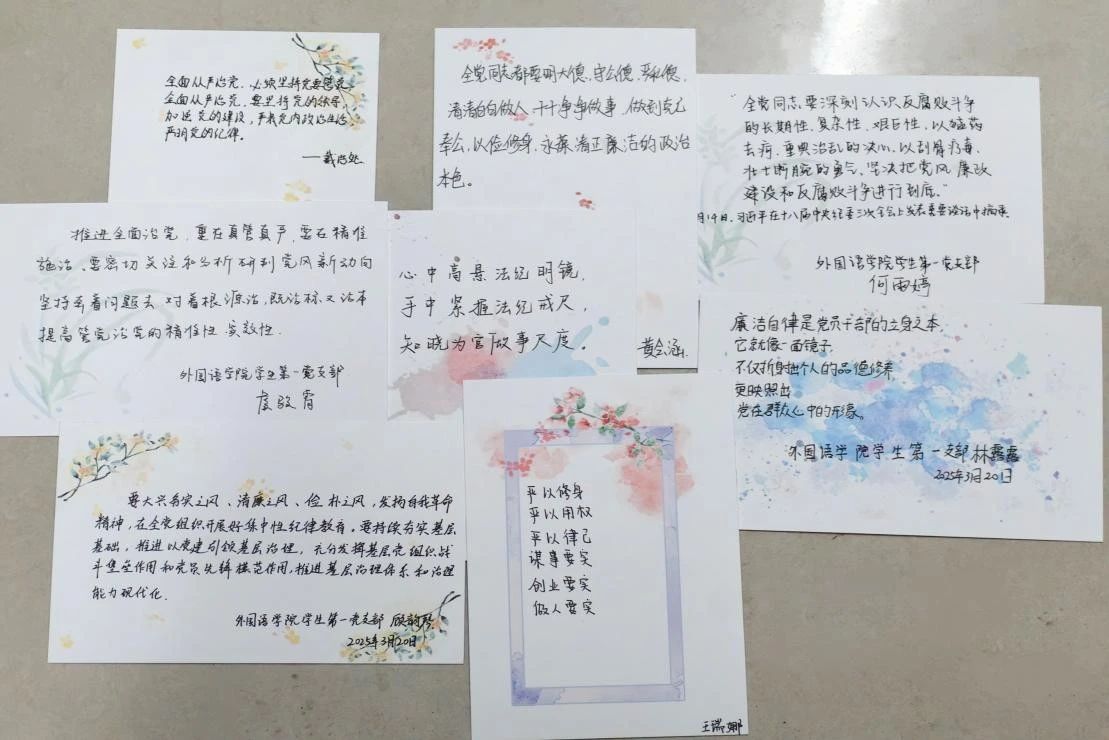 全面从严治党,必须坚持党要管党
全面从严治党,要坚持党的领导,
加强党的建设,严肃党内政治生活
严明党的纪律。
全党同志都要明大德、守公德、严私德,
清清白白做人、干干净净做事、做到克己
奉公,以俭修身,永葆清正廉洁的政治
本色。
黄会涵
全党同志要深刻认识反腐败斗争
的长期性、复杂性、艰巨性,以猛药
去疴、重典治乱的决心,以刮骨疗毒、
壮士断腕的勇气,坚决把党风廉政
建设和反腐败斗争进行到底."
月14日,习近平在十八届中央纪委三次全会上发表重要谈话中摘录.
外国语学院学生第一党支部
何雨婷
推进全面治党,重在真管真严,要在精准
施治、要密切关注和分析研判党风新动向
坚持奔着问题去、对着根源治,既治标又治本
提高管党治党的精准性、实效性.
外国语学院学生第一党支部
心中高悬法纪明镜,
手中紧握法纪戒尺,
知晓为官做事尺度。
廉洁自律是党员干部的立身之本,
它就像一面镜子,
不仅折射出个人的品德修养
更映照出
党在群众心中的形象。
外国语学院学生第一支部 林露露
2025年3月20日
要大兴务实之风、清廉之风、俭朴之风,发扬自我革命
精神,在全党组织开展好集中性纪律教育。要持续夯实基层
基础,推进以党建引领基层治理,充分发挥基层党组织战
斗堡垒作用和党员先锋模范作用,推进基层治理体系和治理
能力现代化.
外国语学院学生第一党支部 顾韵琴
2025年3月20日
严以修身
严以用权
严以律己
谋事要实
创业要实
做人要实
王瑞娜